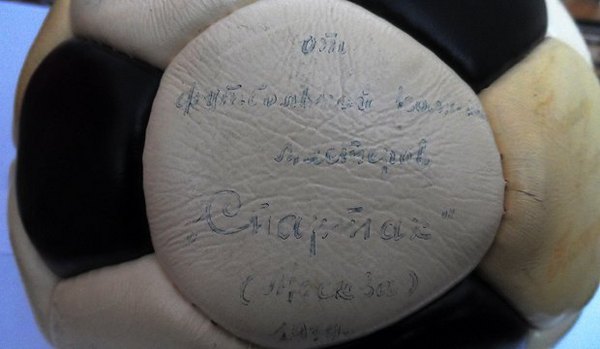 от
футбольной кома
мастеров
„Спартак"
(Москва)